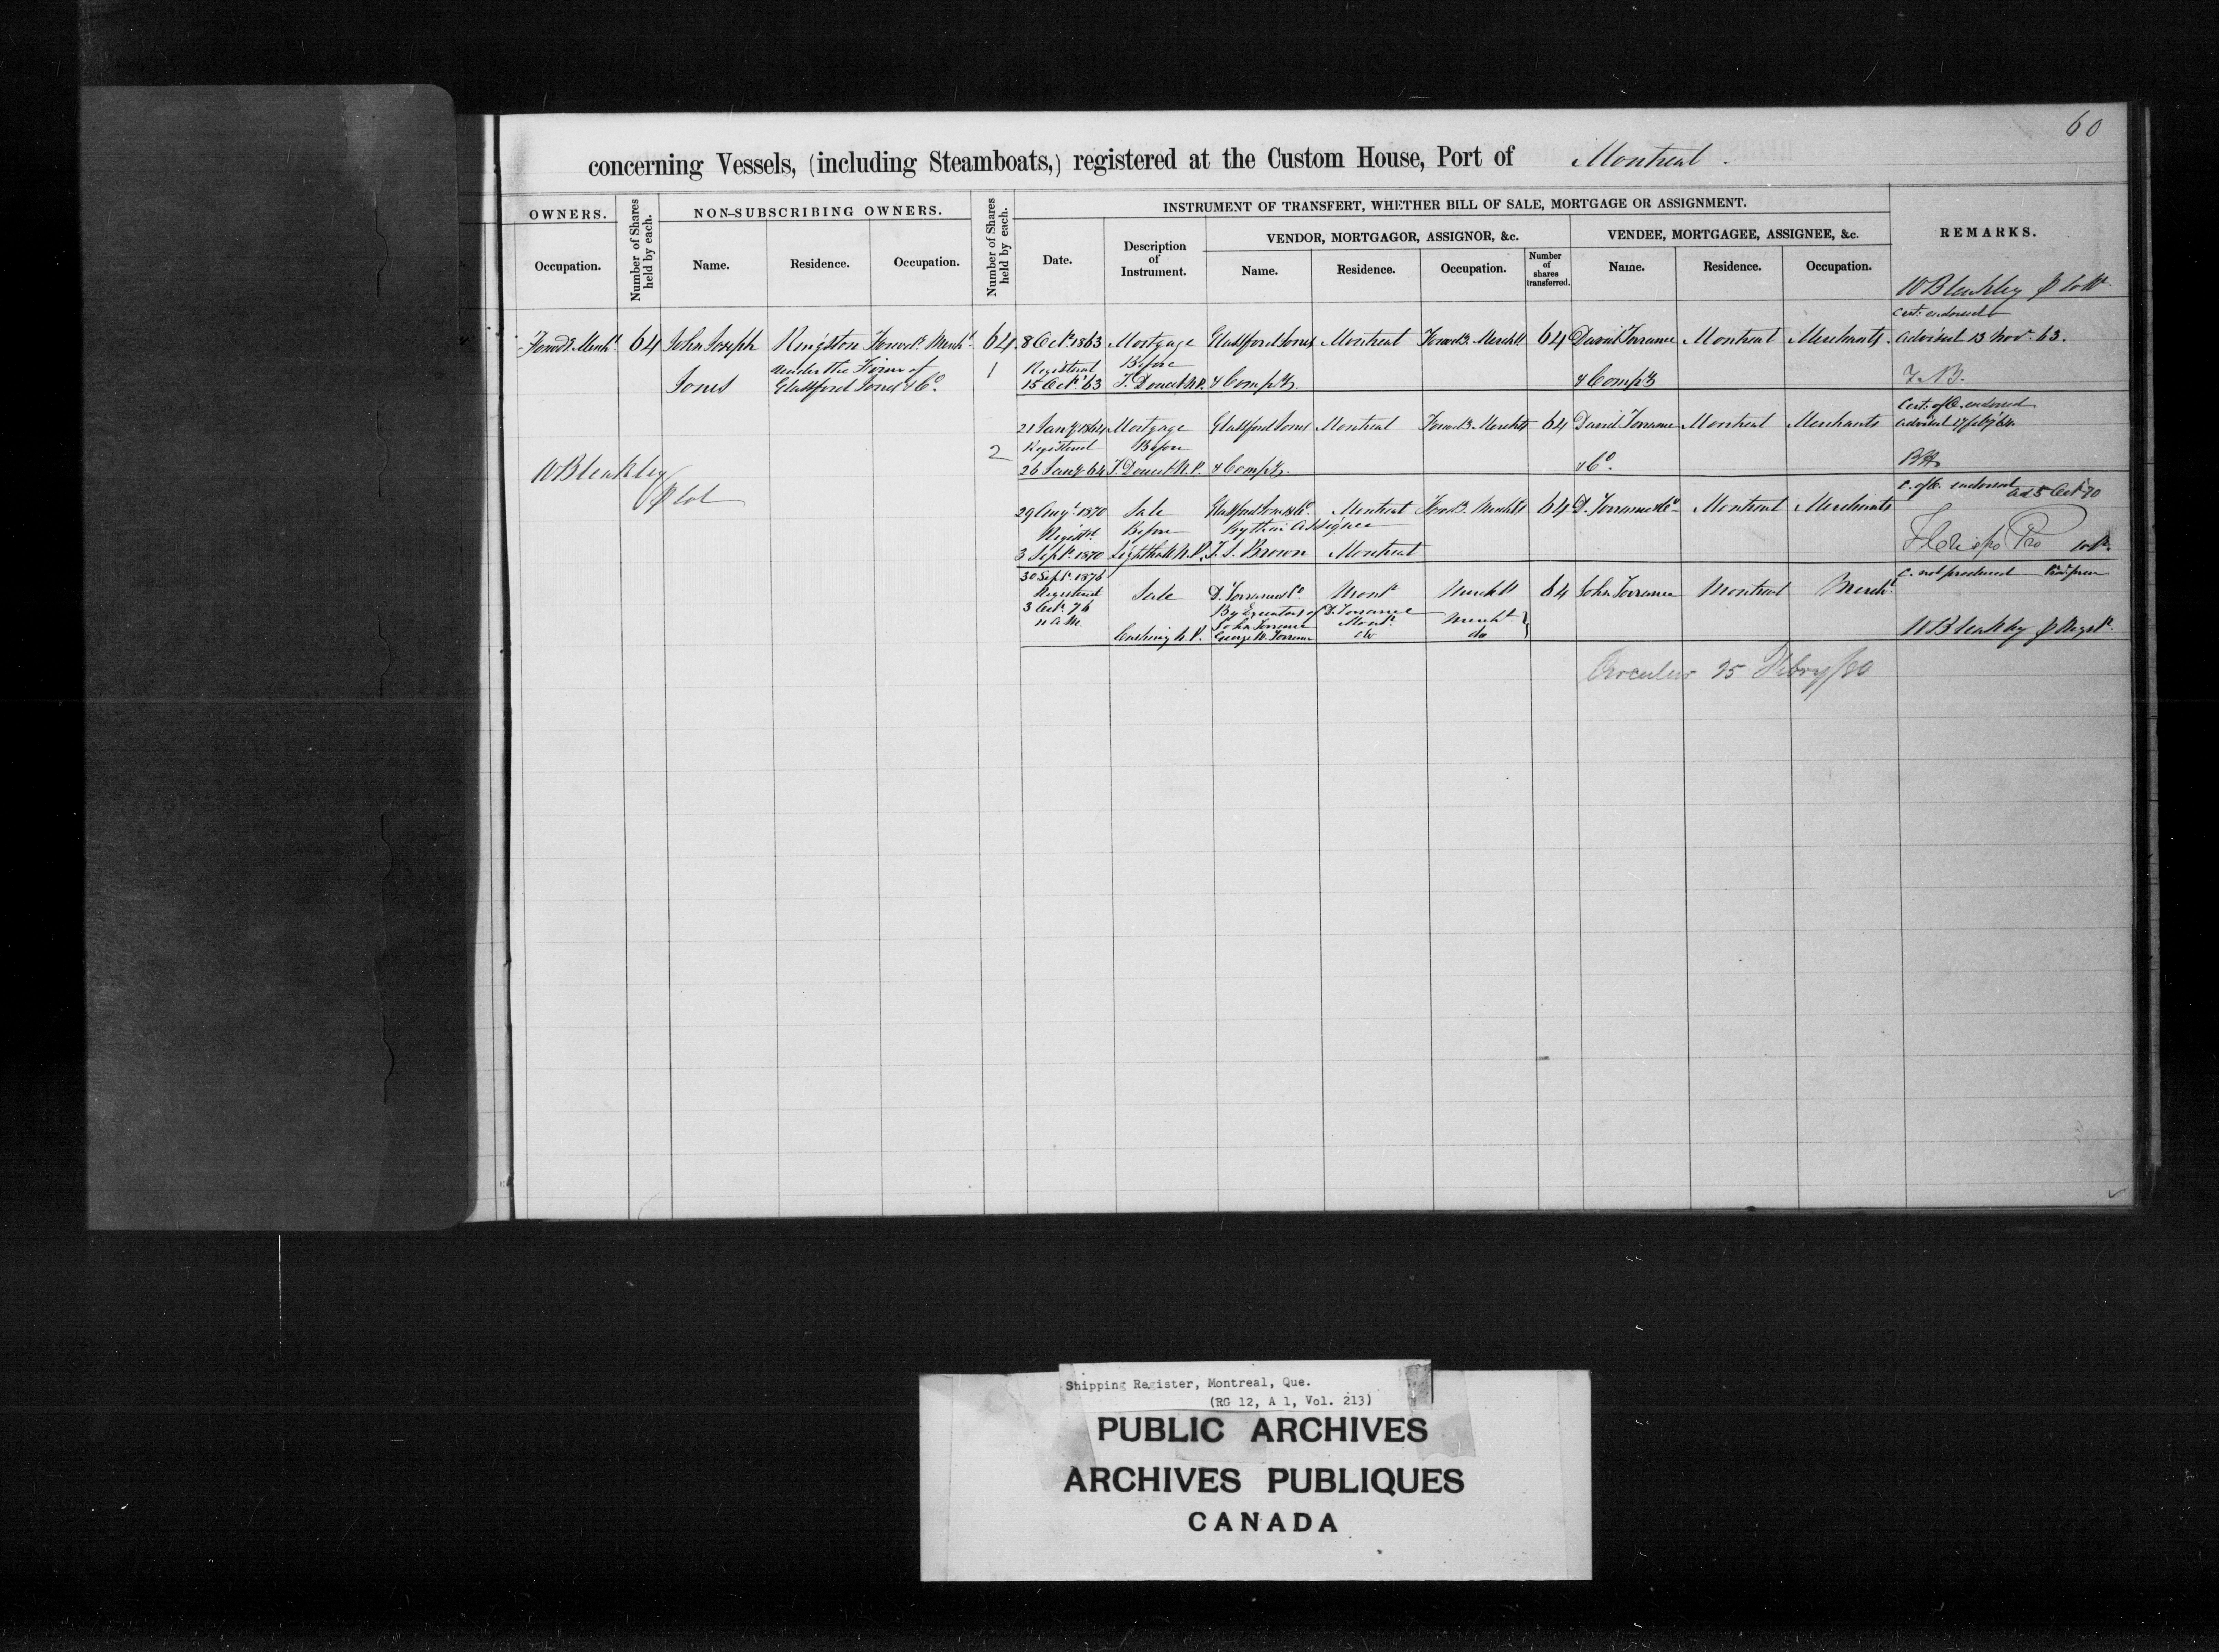 60
concerning Vessels, (including Steamboats,) registered at the Custom House, Port of Montreal.
OWNERS.
Number of Shares held by each.
NON-SUBSCRIBING OWNERS.
Number of Shares held by each.
INSTRUMENT OF TRANSFERT, WHETHER BILL OF SALE, MORTGAGE OR ASSIGNMENT.
REMARKS.
Occupation.
Name.
Residence.
Occupation.
Date.
Description of Instrument.
VENDOR, MORTGAGOR, ASSIGNOR, &c.
VENDEE, MORTGAGEE, ASSIGNEE, &c.
Name.
Residence.
Occupation.
Number of shares transferred.
Name.
Residence.
Occupation.
W Bleakley
Cert. endorsed
Forwd.g Mercht. 64 John Joseph Kingston Forwd.g Mercht. 64 8 Oct. 1863 Mortgage Glassford Jones Montreal Forwd.g Merchts 64 David Torrance Montreal Merchants. advised 13 Nov. 63.
under the Firm of
1 Registered Before
Jones Glassford Jones & Co. 15 Oct. 63 T. Doucet N.P. & Compy. & Compy
Cert. of O. endorsed
21 Jany 1864 Mortgage Glassford Jones Montreal Forwd.g Merchts 64 David Torrance Montreal Merchants advised 17 Feby 64
2 Registered Before
W Bleakley 26 Jany 64 T. Doucet N.P. & Compy. & Co.
C. of O. endorsed ad 5 Oct 70
29 Augt. 1870 Sale Glassford Jones & Co. Montreal Forwd.g Merchts 64 D. Torrance & Co. Montreal Merchants
Registd. Before By their Assignee
3 Sept. 1870 Lighthall N.P. T. S. Brown Montreal
30 Sept. 1876 C. not produced
Registered Sale D. Torrance & Co. Mont. Merchts 64 John Torrance Montreal Mercht.
3 Oct. 76 By Executors of D. Torrance
11 A.M. John Torrance Mont. Mercht.
Cushing N.P. George W. Torrance do do
W Bleakley
Circular 25 Febry/80
Shipping Register, Montreal, Que.
(RG 12, A 1, Vol. 213)
PUBLIC ARCHIVES
ARCHIVES PUBLIQUES
CANADA